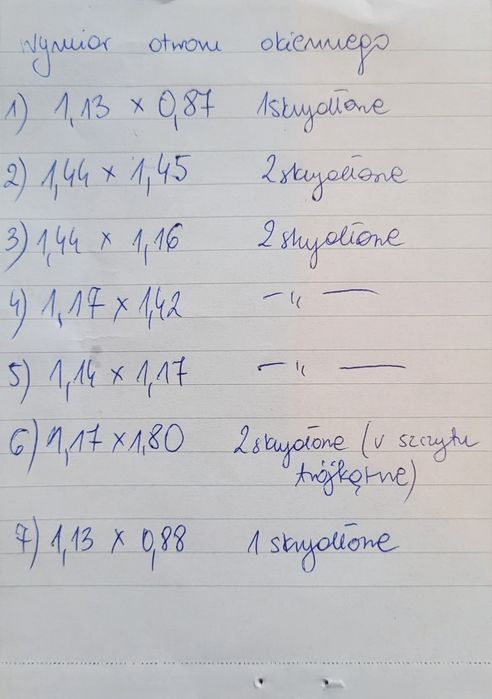 Wymiar otworu okiennego
1) 1,13 x 0,87 1skrzydłowe
2) 1,44 x 1,45 2skrzydłowe
3) 1,44 x 1,16 2skrzydłowe
4) 1,17 x 1,42 -"-
5) 1,14 x 1,17 -"-
6) 1,17 x 1,80 2skrzydłowe (u szczytu
trójkątne)
7) 1,13 x 0,88 1 skrzydłowe